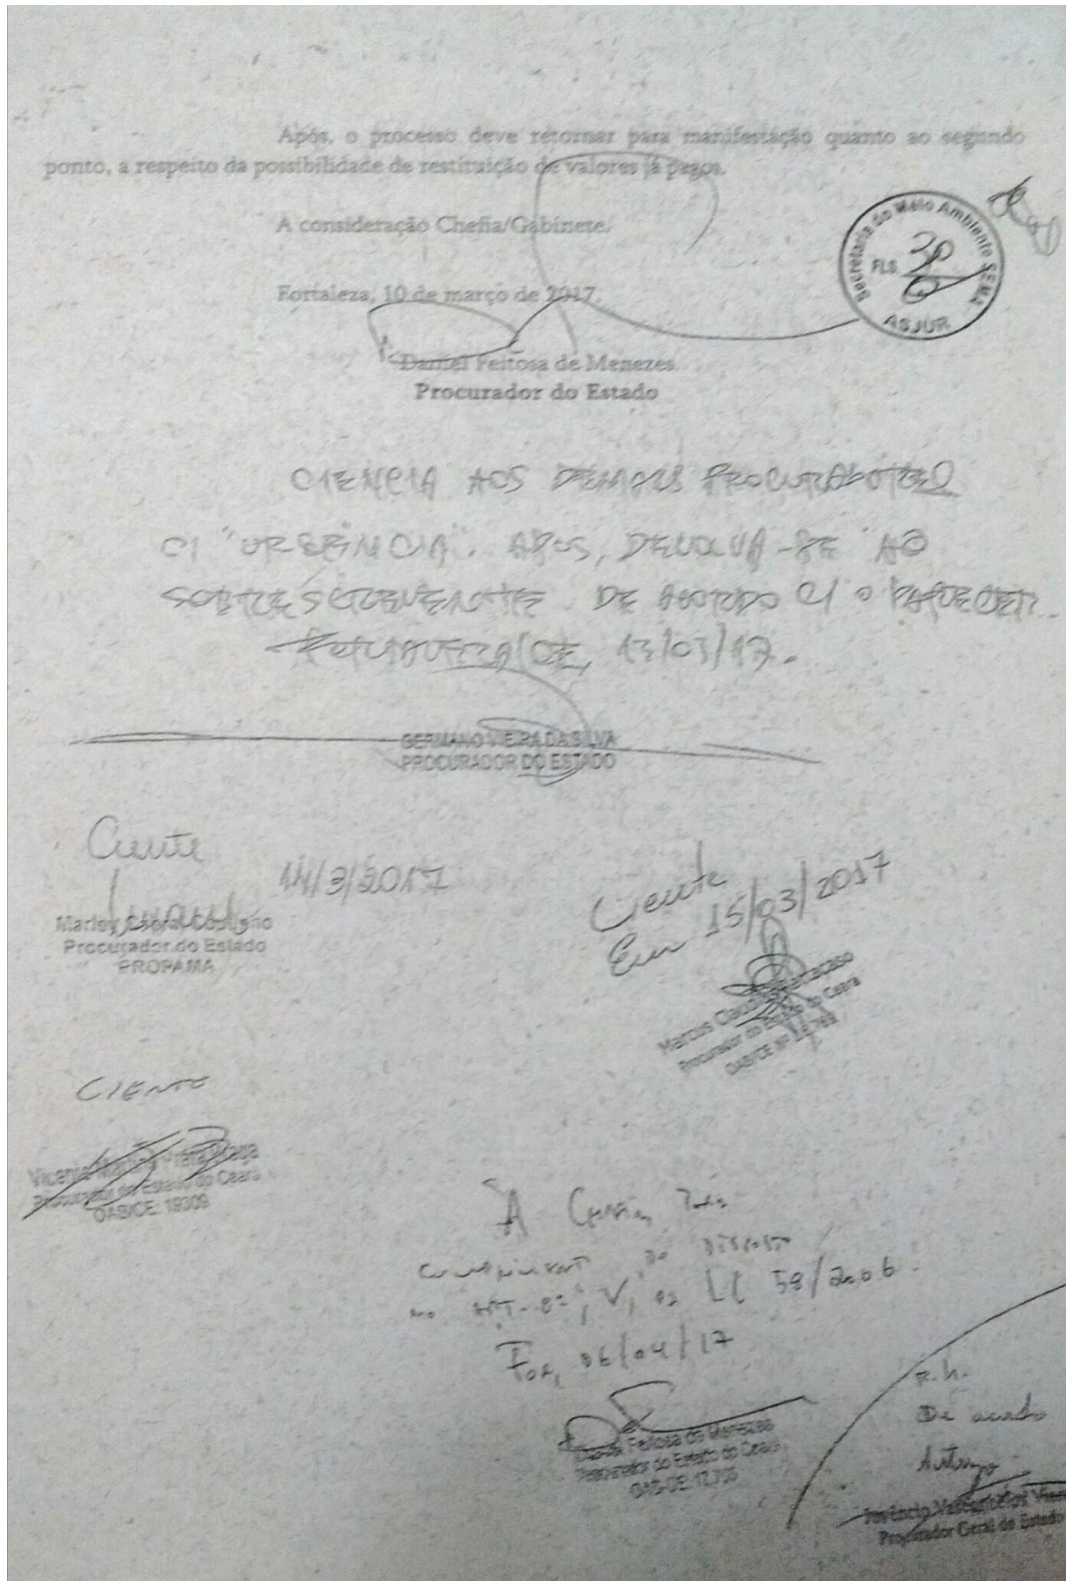 Após, o processo deve retornar para manifestação quanto ao segundo
ponto, a respeito da possibilidade de restituição de valores já pagos.
A consideração Chefia/Gabinete.
Secretaria do Meio Ambiente SEMA
FLS.
ASJUR
Fortaleza, 10 de março de 2017.
Daniel Feitosa de Menezes
Procurador do Estado
CIENCIA AOS DEMAIS PROCURADORES
C/ "URGÊNCIA". APÓS, DEVOLVA-SE AO
DE ACORDO C/ O PARECER.
13/03/17.
GERMANO VIEIRA DA SILVA
PROCURADOR DO ESTADO
Ciente
14/3/2017
Marley
Procurador do Estado
PROPAMA
Ciente
Em 15/03/2017
Marcos
Procurador do Estado do Ceará
OAB/CE Nº
CIENTE
Vicente Martins Prata Braga
Procurador do Estado do Ceará
OAB/CE: 19309
À
cumprimento do disposto
no ART. 8º, V, da LC 58/2006.
For, 06/04/17
Daniel Feitosa de Menezes
Procurador do Estado do Ceará
r.h.
De acordo
Procurador Geral do Estado